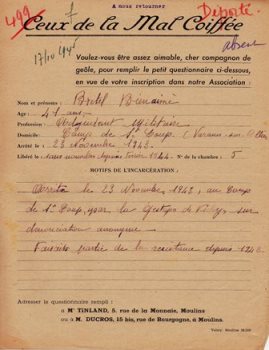 A nous retourner
499
Déporté
Ceux de la Mal Coiffée
absent
Voulez-vous être assez aimable, cher compagnon de
geôle, pour remplir le petit questionnaire ci-dessous,
en vue de votre inscription dans notre Association :
Nom et prénoms :
Age : 41 ans
Profession :
Militaire
Domicile : Camp de
Arrêté le : 23 Novembre 1943
Libéré le
1944
N° de la chambre : 5
MOTIFS DE L'INCARCÉRATION :
Arrêté le 23 Novembre 1943, au Camp
de
par la Gestapo de Vichy sur
dénonciation anonyme
Faisais partie de la résistance depuis 1943
Adresser le questionnaire rempli :
à Me TINLAND, 5, rue de la Monnaie, Moulins
ou à M. DUCROS, 15 bis, rue de Bourgogne, à Moulins.